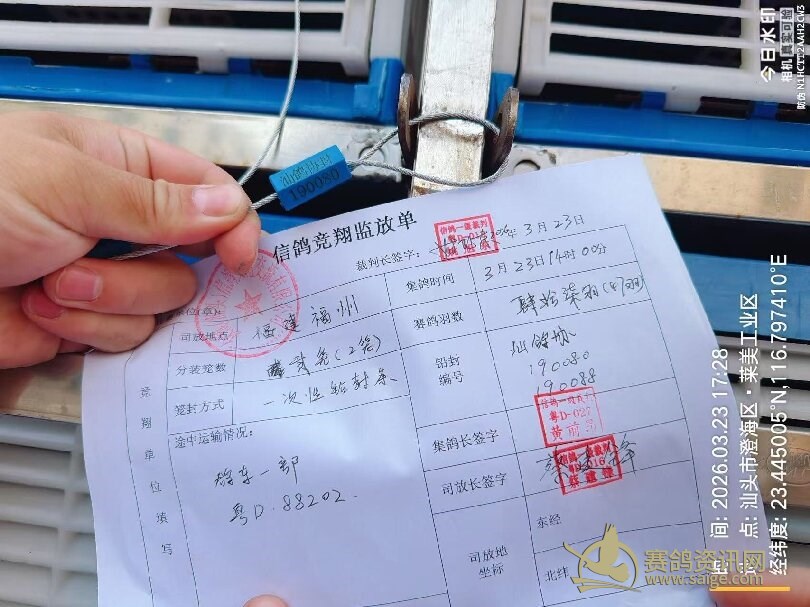 今日水印
相机 真实可验
防伪 N1HCTT2AAH2EW3
190080
信鸽竞翔监放单
信鸽一级裁判
粤D-01
裁判长签字：
年3月23日
单位(章)：
集鸽时间
3月23日14时00分
司放地点
福建福州
赛鸽羽数
肆拾柒羽(47羽)
分装笼数
贰笼(2笼)
铅封
编号
汕鸽协
190080
190088
签封方式
一次性铅封条
竞翔单位填写
途中运输情况：
粤D.88202.
集鸽长签字
信鸽一级裁判
粤D-027
司放长签字
司放地
坐标
东经
北纬
时 间: 2026.03.23 17:28
地 点: 汕头市澄海区·莱美工业区
经纬度: 23.445005°N,116.797410°E
赛鸽资讯网
www.saige.com